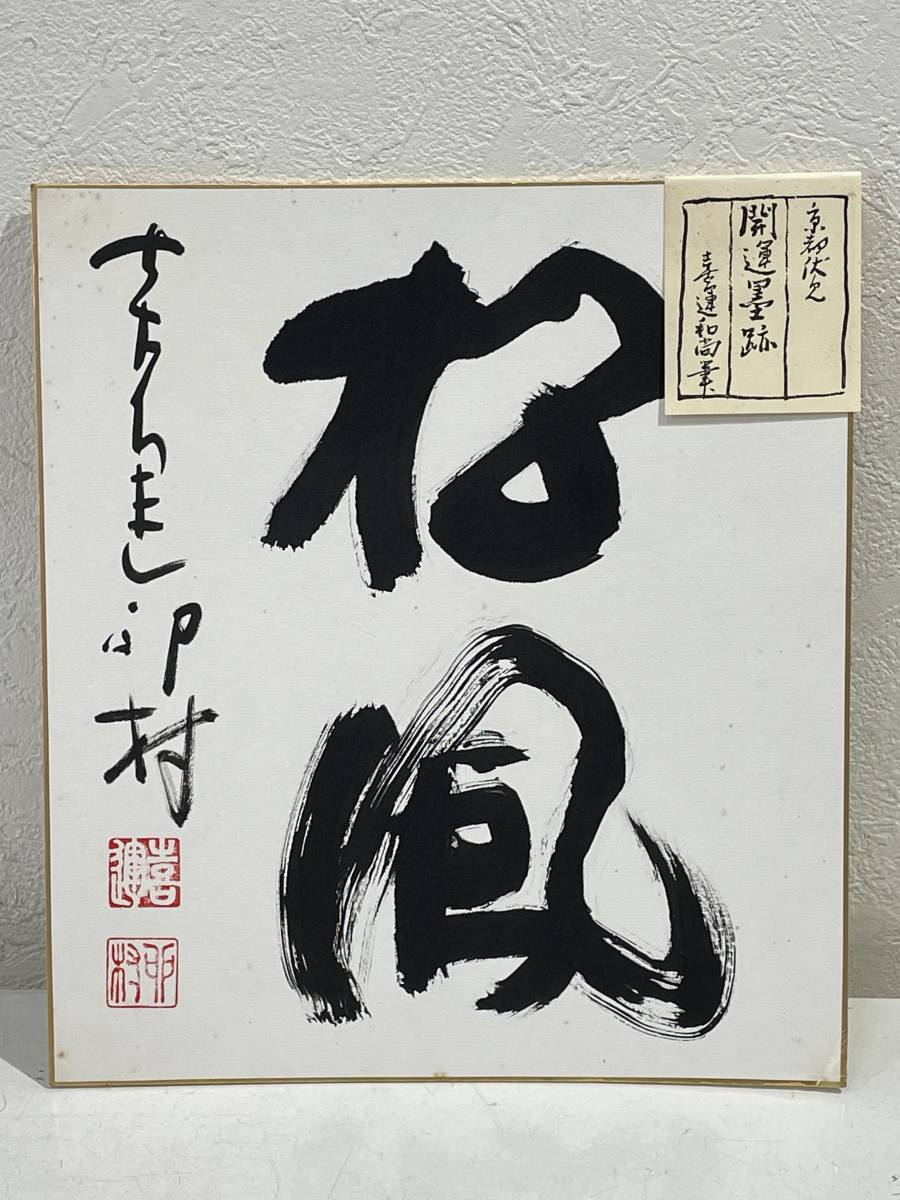 松風
喜運 卯村
喜運
卯村
京都伏見
開運墨跡
喜運和尚筆